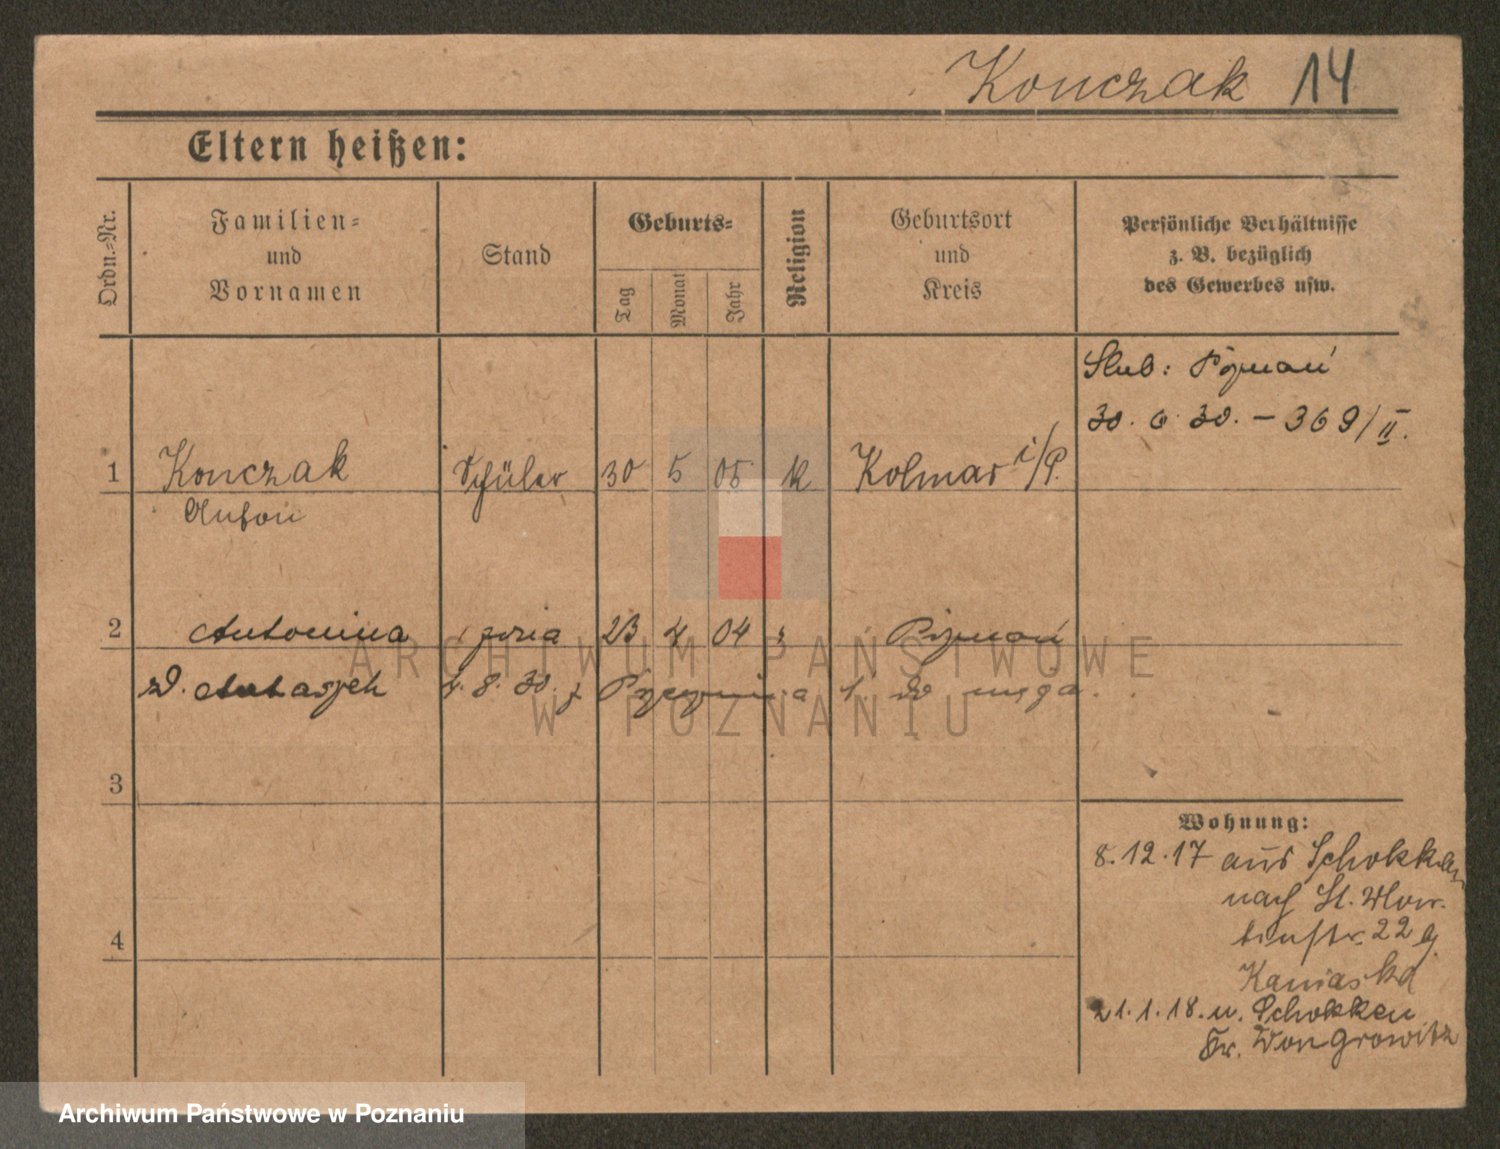 Konczak 14
Eltern heißen:
Ordn.-Nr.
Familien-
und
Vornamen
Stand
Geburts-
Tag
Monat
Jahr
Religion
Geburtsort
und
Kreis
Persönliche Verhältnisse
z. B. bezüglich
des Gewerbes usw.
Slub: Poznań
30. 6. 30. – 369/II.
1 Konczak Schüler 30 5 05 k Kolmar i/P.
Anton
2 Antonina 23 04 Poznań
z d. 4. 8. 30. z do męża.
3
Wohnung:
8.12.17 aus Schokken
nach St. Mar-
tinstr. 22
21.1.18. n. Schokken
Kr. Wongrowitz
4
ARCHIWUM PAŃSTWOWE
W POZNANIU
Archiwum Państwowe w Poznaniu